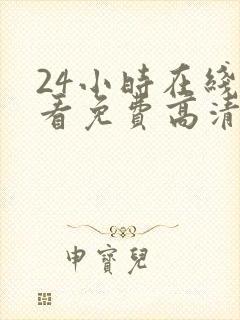 24小時在綫
看免費高清
申寶兒